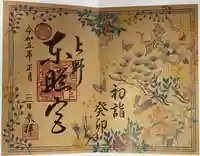 初詣
癸卯
上野
東照宮
令和五年正月
二日 参拝